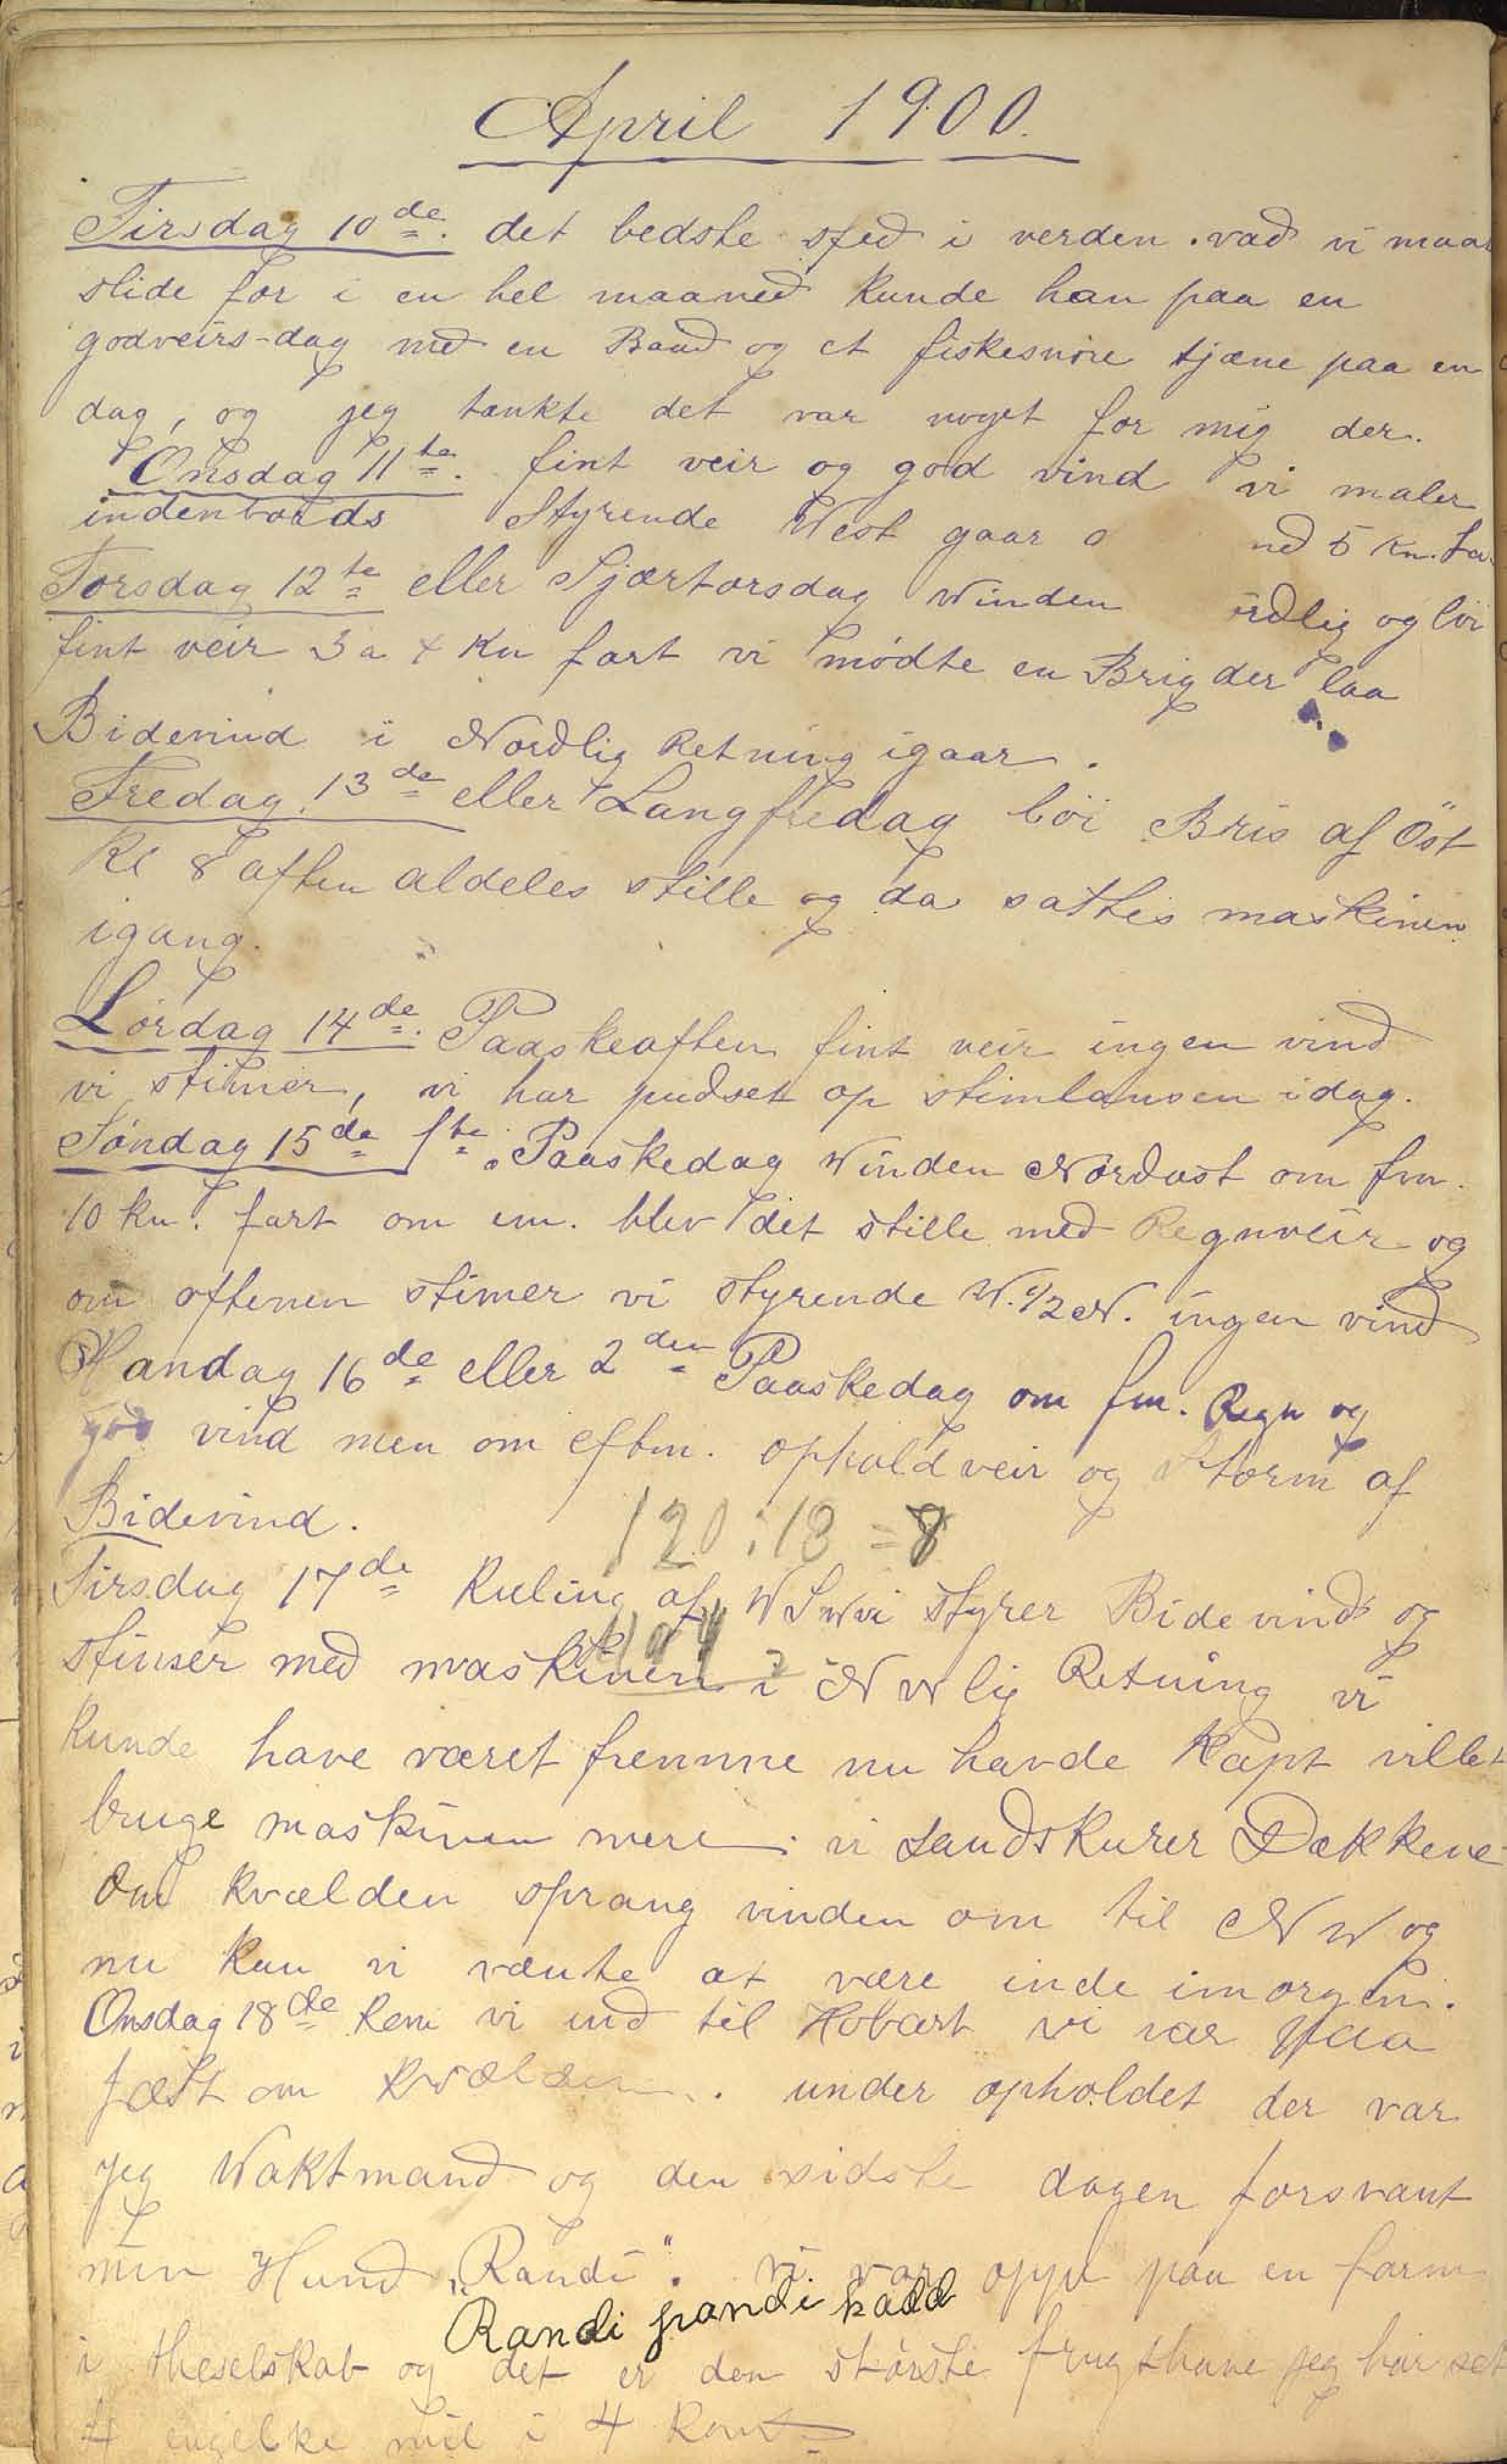 April 1900.
Tirsdag 10de. det bedste sted i verden. vad vi maa
slide for i en hel maaned kunde han paa en
godveirs-dag med en Baad og et fiskesnøre tjæne paa en
dag, og jeg tænkte det var noget for mig der.
Onsdag 11te. fint veir og god vind vi maler
indenbords Styrende West gaar ned 5 Kn. fa
Torsdag 12te eller Sjærtorsdag Winden ørdlig og löi
fint veir 3 a 4 Kn fart vi mødte en Brig der laa
Bidevind i Nordlig Retning igaar.
Fredag. 13de eller Langfredag löi Bris af Öst
Kl 8 aften aldeles stille og da sattes maskinen
igang.
Lørdag 14de. Paaskeaften fint veir ingen vind
vi stimer, vi har pudset op stimlansen idag.
Søndag 15de 1ste. Paaskedag Winden Nordost om fm.
10 Kn. fart om em. blev det stille med Regnveir og
om aftenen stimer vi styrende W. 1/2 N. ingen vind
Mandag 16de eller 2den Paaskedag om fm. Regn og
god vind men om eftm. opholdveir og Storm af
Bidevind.
120:13 = 8
Tirsdag 17de Kuling af WSW vi styrer Bidevind og
stimer med maskinen i NWlig Retning vi
104
kunde have været fremme nu havde Kapt villet
bruge maskinen mere. vi sandskurer Dækkene
Om kvælden sprang vinden om til NW og
nu kan vi vænte at være inde imorgen.
Onsdag 18de kom vi ind til Hobart vi var paa
fæst om kvælden. under opholdet der var
jeg Waktmand og den sidste dagen forsvant
min Hund „Randi". vi var oppe paa en farm
Randi pandi kald
i theselskab og det er den største frugthave jeg har set
4 engelske mil i 4 Kant